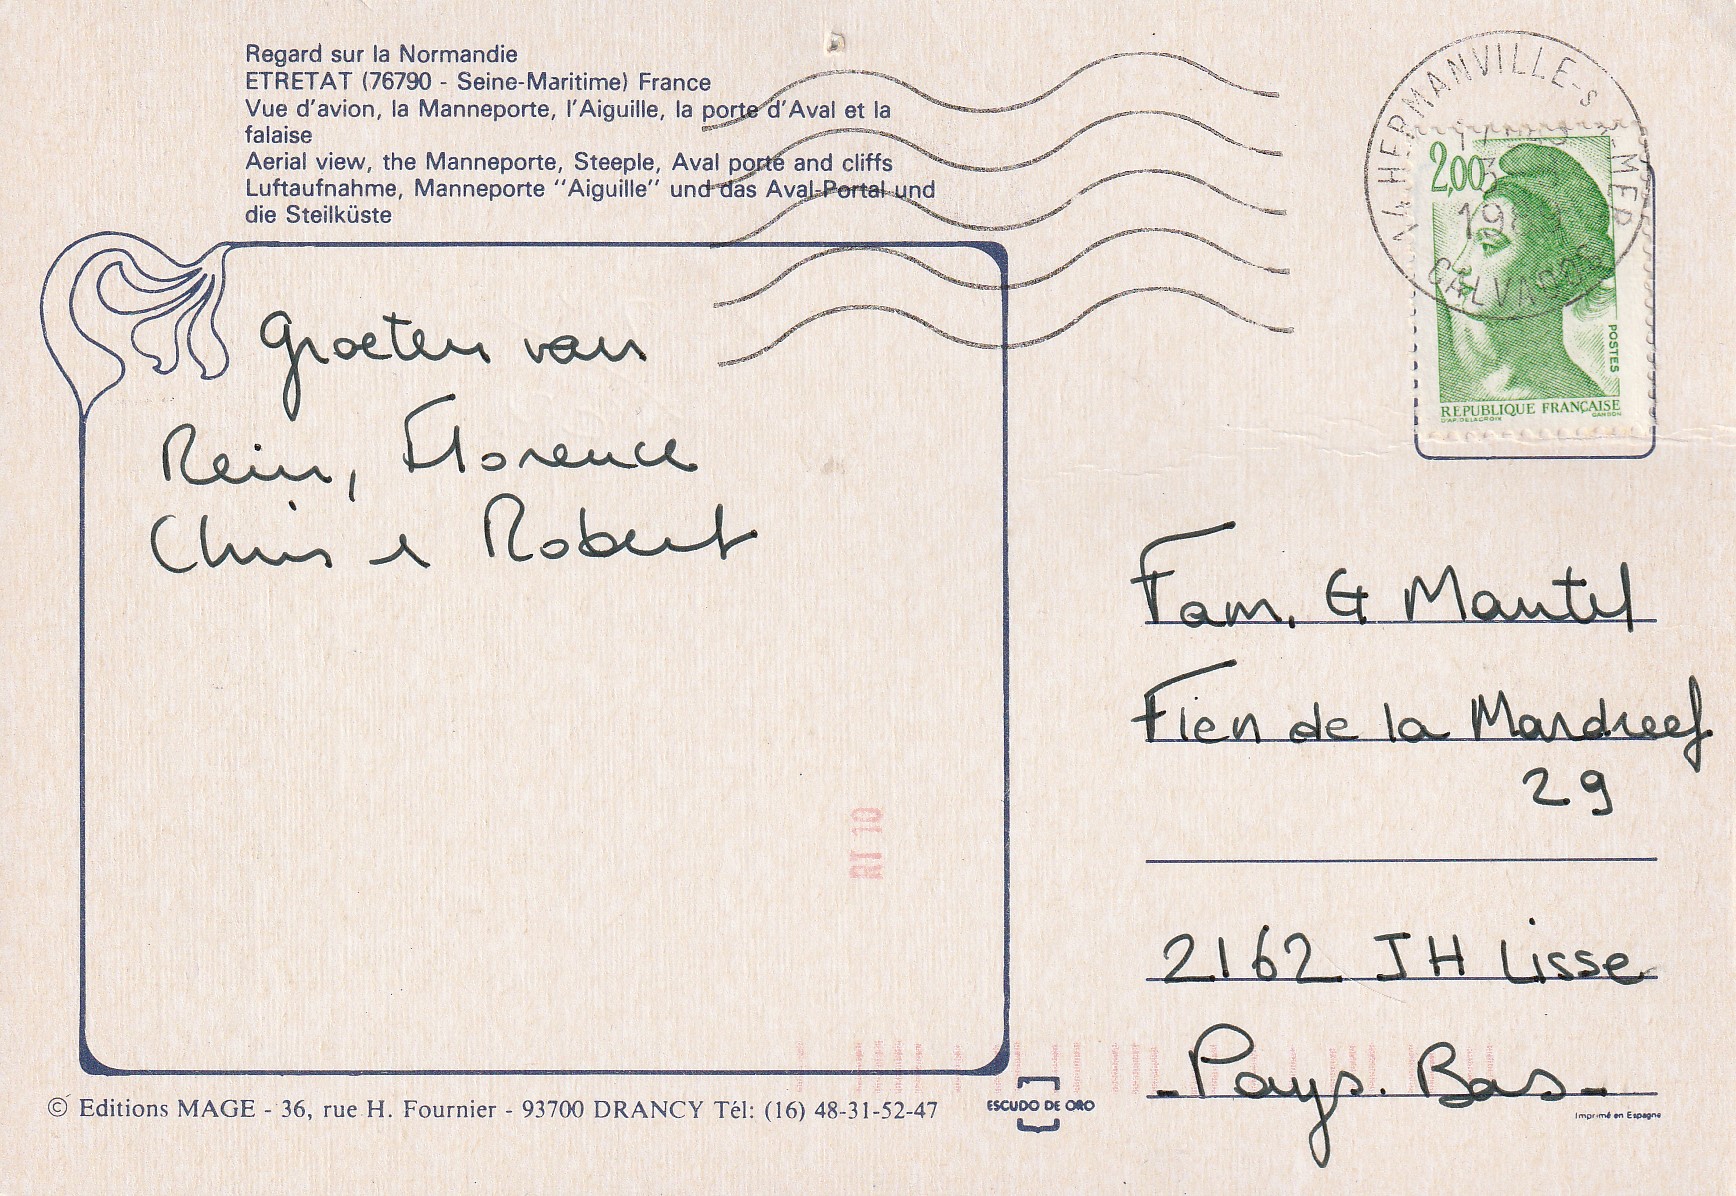 Regard sur la Normandie
ETRETAT (76790 - Seine-Maritime) France
Vue d'avion, la Manneporte, l'Aiguille, la porte d'Aval et la
falaise
Aerial view, the Manneporte, Steeple, Aval porte and cliffs
Luftaufnahme, Manneporte "Aiguille" und das Aval-Portal und
die Steilküste
Groeten van
Rein, Florence
Chris e Robert
HERMANVILLE-s-MER
CALVADOS
2,00
POSTES
REPUBLIQUE FRANÇAISE
D'AP. DELACROIX
GANDON
Fam. G Mantel
Fien de la Mardreef
29
2162 JH Lisse
- Pays. Bas -
RT 10
© Editions MAGE - 36, rue H. Fournier - 93700 DRANCY Tél: (16) 48-31-52-47
ESCUDO DE ORO
Imprimé en Espagne